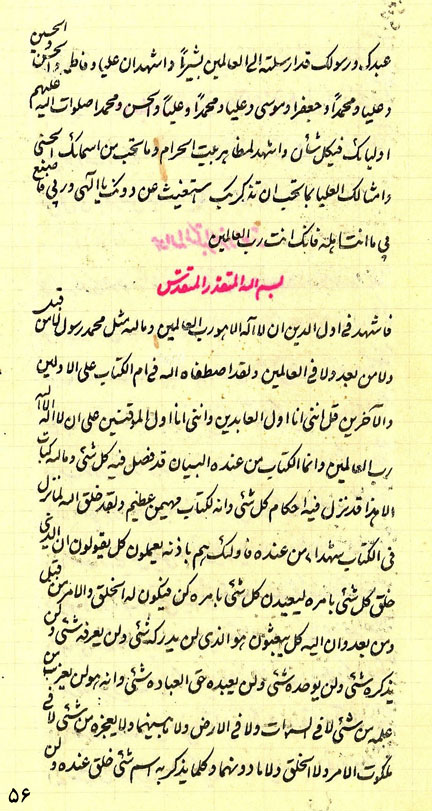 عبدك و رسولك قد ارسلته الى العالمين بشيراً و اشهد ان علياً و فاطمة و الحسن و الحسين
و علياً و محمداً و جعفراً و موسى و علياً و محمداً و علياً و الحسن و محمداً صلوات الله عليهم
اوليائك في كل شأن و اشهد لمظاهر بيت الحرام و ما تحب من اسمائك الحسنى
و امثالك العليا بما تحب ان تذكر بك استغيث عن دونك يا الهي و ربي فاصنع
بي ما انت اهله فانك انت رب العالمين
بسم الله المتقدر المتقدس
فاشهد في اول الدين ان لا اله الا هو رب العالمين و ما له مثل محمد رسول لا من قبل
و لا من بعد و لا في العالمين و لقد اصطفاه الله في ام الكتاب على الاولين
و الآخرين قل انني انا اول العابدين و انني انا اول الموقنين على ان لا اله الا الله
رب العالمين و انما الكتاب من عنده البيان قد فصل فيه كل شئ و ما له كتاب
الا هذا قد نزل فيه احكام كل شئ و انه لكتاب مهيمن عظيم و لقد خلق الله لما نزل
في الكتاب شهداء من عنده فاولئك هم باذنه يعملون كل يقولون ان الذي
خلق كل شئ بامره ليعيدن كل شئ بامره كن فيكون له الخلق و الامر من قبل
و من بعد و ان اليه كل يبعثون هو الذي لن يدركه شئ و لن يعرفه شئ و لن
يذكره شئ و لن يوحده شئ و لن يعبده حق العباده شئ و انه هو لن يعزب من
علمه من شئ لا في السموات و لا في الارض و لا ما بينهما و لا يعجزه من شئ لا في
ملكوت الامر و لا الخلق و لا ما دونهما و كلما يذكر به اسم شئ خلق عنده و لن
۵۶